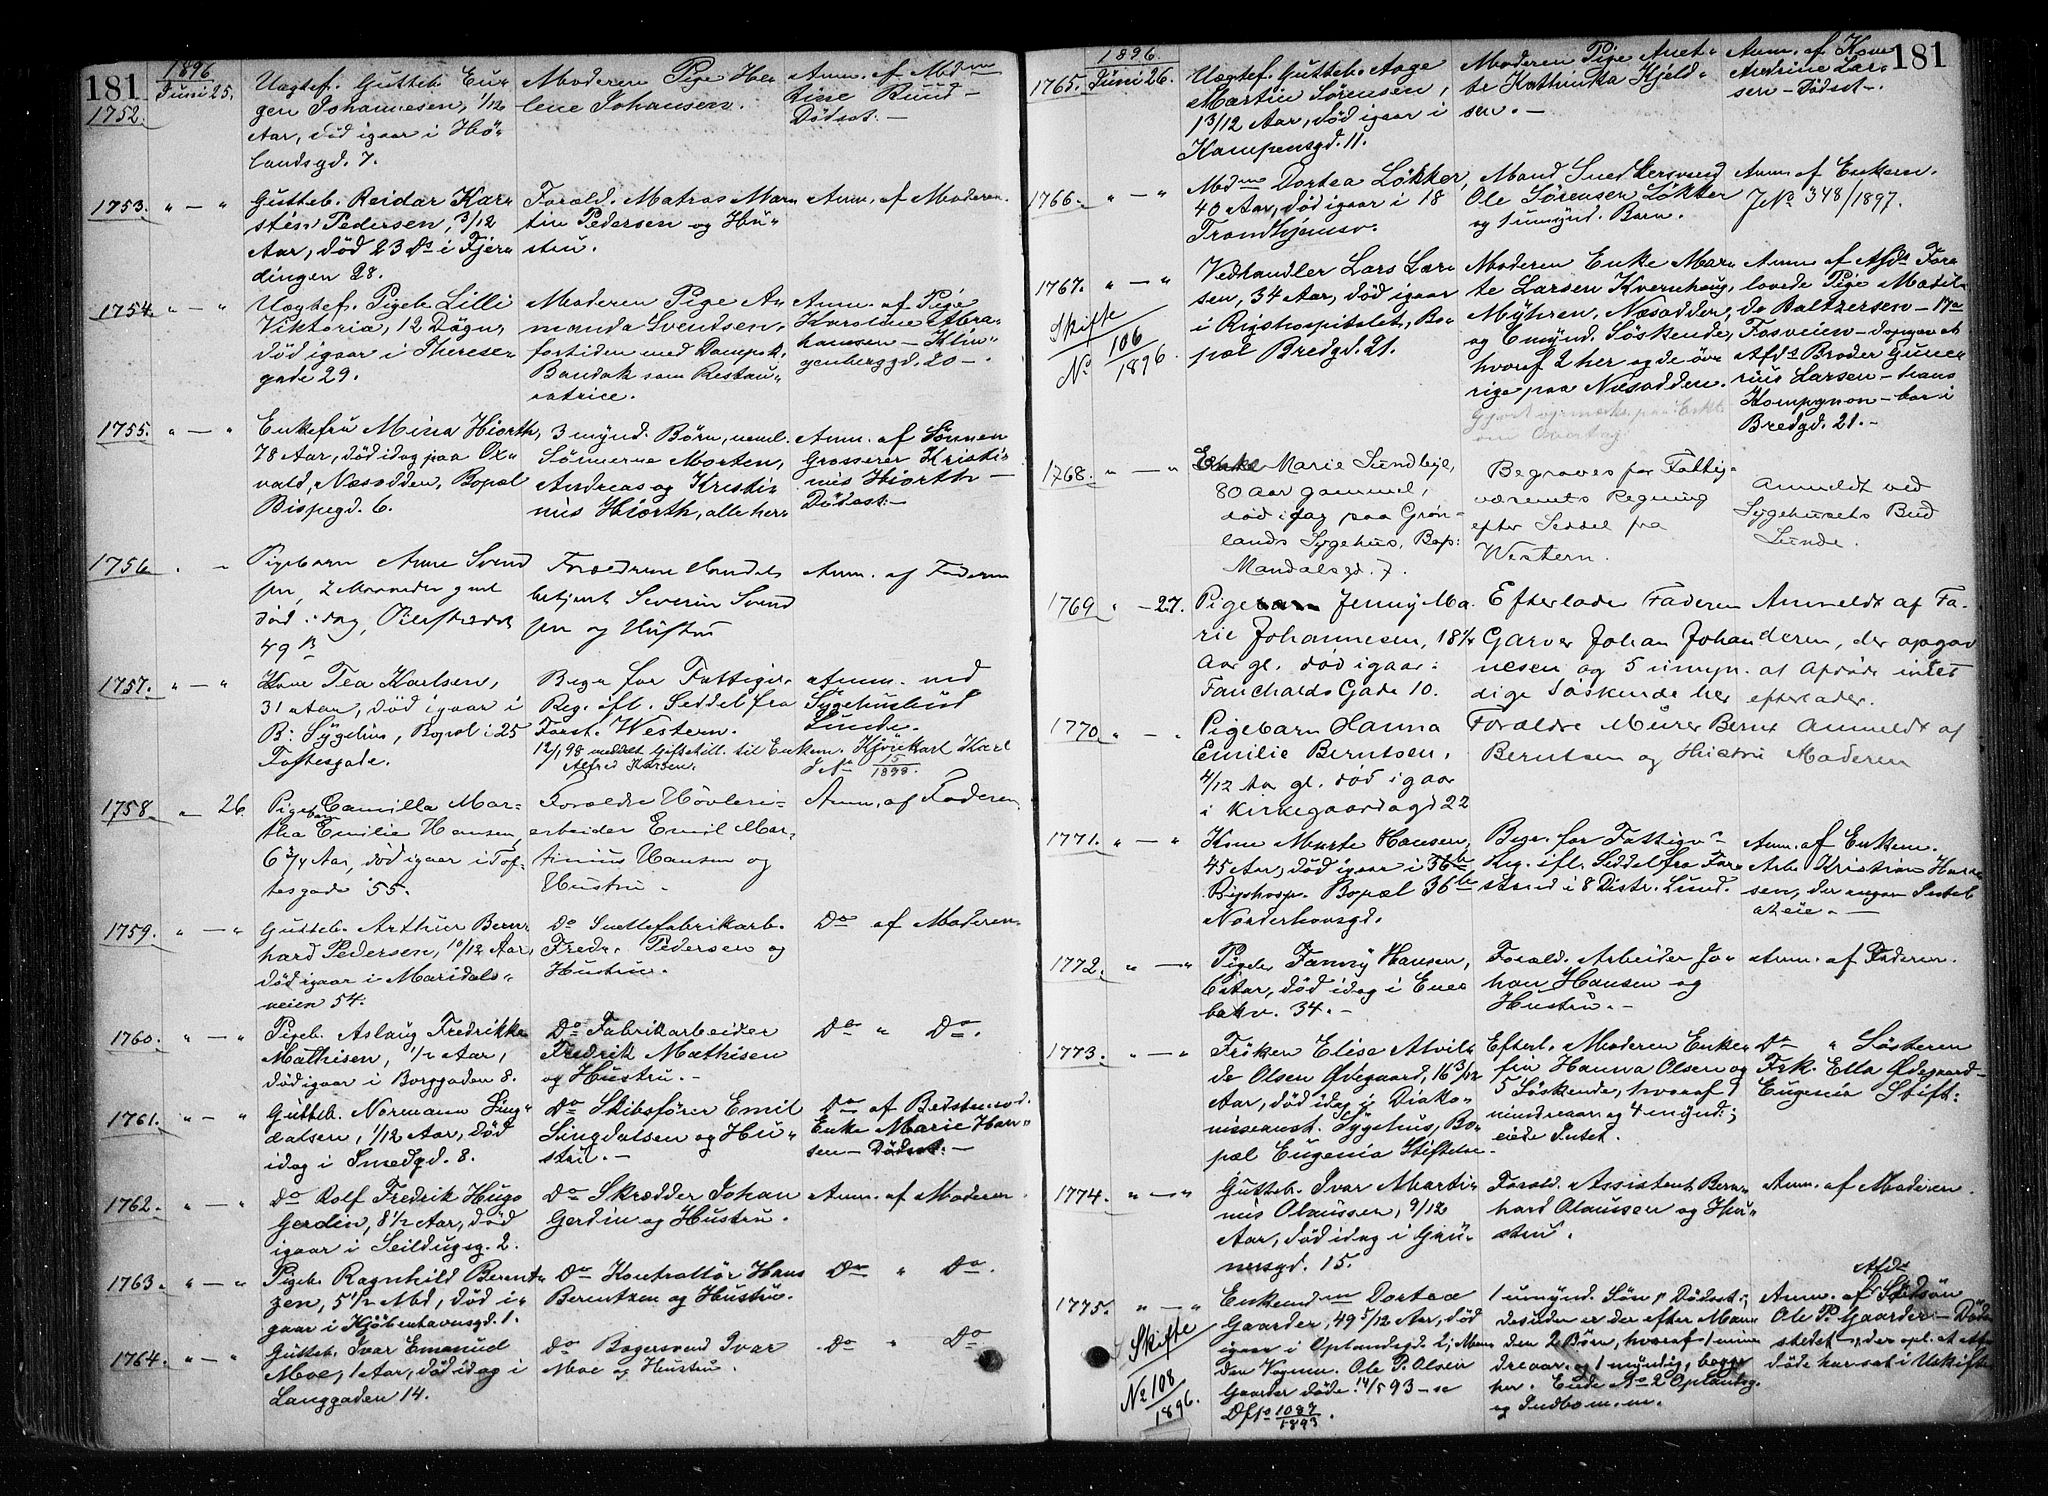 181
1896
Juni 25.
1752.
Uægtef. Gutteb. Eu-
gen Johannesen, 1/12
Aar, död igaar i Hö-
landsgd. 7.
Moderen Pige He-
lene Johansen.
Anm. af Mdm
Ruud -
Dödsst. -
1753. " — "
Gutteb. Reidar Kar-
sten Pedersen, 3/12
Aar, död 23 Ds i Fjer-
dingen 28.
Foræld. Matros Mar-
tin Pedersen og Hu-
stru.
Anm. af Moderen.
1754. " — "
Uægtef. Pigeb. Lilli
Viktoria, 12 Dögn,
död igaar i Therese-
gade 29.
Moderen Pige A-
manda Svendsen,
fortiden med Dampsk.
Bandak som Restau-
ratrice.
Anm. af Pige
Karoline Abra-
hamsen - Klin-
genberggd. 20 -.
1755. " — "
Enkefru Mina Hiorth,
78 Aar, död idag paa Ox-
vald, Næsodden, Bopæl
Bispegd. 6.
3 mynd. Börn, neml.
Sönnerne Morten,
Andreas og Kristi-
nus Hiorth, alle her.
Anm. af Sönnen
Grosserer Kristi-
nus Hiorth -
Dödsst. -
1756.
Pigebarn Anne Svend
sen, 2 Maaneder gml
död idag, Pilestrædet
49 B
Forældrene Handels
betjent Severin Svend
sen og Hustru
Anm. af Faderen
1757. " — "
Kone Tea Karlsen,
31 Aar, död igaar i
B. Sygehus, Bopæl i 25
Toftesgade.
Begr. for Fattigv.
Reg. ifl. Seddel fra
Forst. Western.
12/1 98 meddelt Giftetill. til Enkem. Karl
Alfred Karlsen. J No 15/1898.
Anm. ved
Sygehusbud
Lunde.
1758. " 26.
Pigebarn Camilla Mar-
tha Emilie Hansen,
6 3/4 Aar, död igaar i Tof-
tesgade 55.
Forældre Hövleri-
arbeider Emil Mar-
tinius Hansen og
Hustru.
Anm. af Faderen
1759. " — "
Gutteb. Arthur Bern-
hard Pedersen, 10/12 Aar,
död igaar i Maridals-
veien 54.
Do
Fredr. Pedersen og
Hustru.
Do af Moderen
1760. " — "
Pigeb. Aslaug Fredrikke
Mathisen, 1/2 Aar,
död igaar i Borggaden 8.
Do Fabrikarbeider
Fredrik Mathisen
og Hustru. -
Do " Do.
1761. " — "
Gutteb. Normann Sing-
dalsen, 1/12 Aar, död
idag i Smedgd. 8.
Do Skibsförer Emil
Singdalsen og Hu-
stru. -
Do af Bedstemod.
Enke Marie Han-
sen - Dödsst. -
1762. " — "
Do Rolf Fredrik Hugo
Gerdin, 8 1/2 Aar, död
igaar i Seildugsg. 2.
Do Skrædder Johan
Gerdin og Hustru.
Anm. af Moderen.
1763. " — "
Pigeb. Ragnhild Berent-
zen, 5 1/2 Md, död i-
gaar i Kjöbenhavnsgd. 1.
Do Kontrollör Hans
Berentzen og Hustru.
Do " Do.
1764. " — "
Gutteb. Ivar Emanuel
Moe, 1 Aar, död idag i
Langgaden 14.
Do Bagersvend Ivar
Moe og Hustru.
Do " Do
181
1896
1765. Juni 26.
Uægtef. Gutteb. Aage
Martin Sörensen,
1 3/12 Aar, död igaar i
Kampensgd. 11.
Moderen Pige Anet-
te Kathinka Kjeld-
sen. -
Anm. af Kone
Andrine Lar-
sen - Dödsst -.
1766. " — "
Mdme Dortea Lökker,
40 Aar, död igaar i 18
Trondhjemsv.
Mand Snedkersvend
Ole Sörensen Lökker
og 1 umynd. Barn.
Anm. af Enkem.
J No 348/1897.
1767. " — "
Skifte
No 106/1896.
Vedhandler Lars Lar-
sen, 34 Aar, död igaar
i Rigshospitalet, Bo-
pæl Bredgd. 21.
Moderen Enke Mar-
te Larsen Kvernhaug,
Myhren, Næsodden,
og 6 mynd. Söskende,
hvoraf 2 her og de öv-
rige paa Næsodden.
Anm. af Afds For-
lovede Pige Matil-
da Baltzersen - 17a
Fosveien - opgav at
Afds Broder Gune-
rius Larsen - hans
Kompagnon - bor i
Bredgd. 21. -
1768. " — "
Enke Marie Sundbye,
80 aar gammel,
död idag paa Grön-
lands Sygehus, Bop:
Mandalsgd. 7.
Begraves for Fattig-
væsenets Regning
efter Seddel fra
Western.
Anmeldt ved
Sygehusets Bud
Lunde.
1769 " — 27.
Pigebarn Jenny Ma-
rie Johannesen, 18 1/2
Aar gl. död igaar:
Fauchalds Gade 10.
Efterlader Faderen
Garver Johan Johan
nesen og 5 umyn-
dige Söskende her
Anmeldt af Fa-
deren, der opgav
at Afdöde intet
efterlader.
1770 " — "
Pigebarn Hanna
Emilie Berntsen,
4/12 Aar gl. död igaar
i Kirkegaardsgd 22
Forældre Murer Bernt
Berntsen og Hustru
Anmeldt af
Moderen
1771. " — "
Kone Marte Hansen,
45 Aar, död igaar i
Rigshosp. Bopæl 36b
Norderhovsgd.
Begr. for Fattigv.
Reg. ifl. Seddel fra For-
stand i 8 Distr. Lund.
Anm. af Enkem.
Arb. Kristian Han-
sen, der angav Intet
at eie. -
1772. " — "
Pigeb. Fanny Hansen,
6 Aar, död idag i Ene-
bakv. 34. -
Foræld. Arbeider Jo-
han Hansen og
Hustru. -
Anm. af Faderen.
1773. " — "
Fröken Elise Alvil-
de Olsen Ödegaard, 16 3/12
Aar, död idag i Diako-
nisseanst. Sygehus, Bo-
pæl Eugenia Stiftelse.
Efterl. Moderen Enke-
fru Hanna Olsen og
5 Söskende, hvoraf 1
mindreaar. og 4 mynd.;
eiede Intet.
Do " Sösteren
Frk. Ella Ödegaard -
Eugenia Stift:
1774. " — "
Gutteb. Ivar Marti-
nius Olaussen, 9/12
Aar, död idag i Grü-
nersgd. 15.
Foræld. Assistent Bern-
hard Olaussen og Hu-
stru.
Anm. af Moderen.
1775. " — "
Skifte
No 108/1896.
Enkemdm Dortea
Gaarder, 49 5/12 Aar, död
igaar i Oplandsgd 2; Man
den Ole P. Olsen
Gaarder döde 14/5 93 - se
Df No 1087/1893.
1 umynd. Sön p Dödsst.;
desuden er der efter Man-
den 2 Börn, hvoraf 1 min-
dreaar. og 1 myndig, begge
her. Eiede No 2 Oplandsg.
og Indbo m.m.
Anm. af Afds Stedsön
Ole P. Gaarder - Döds
stedet -, der opl. at Af-
döde har sat i Uskifte